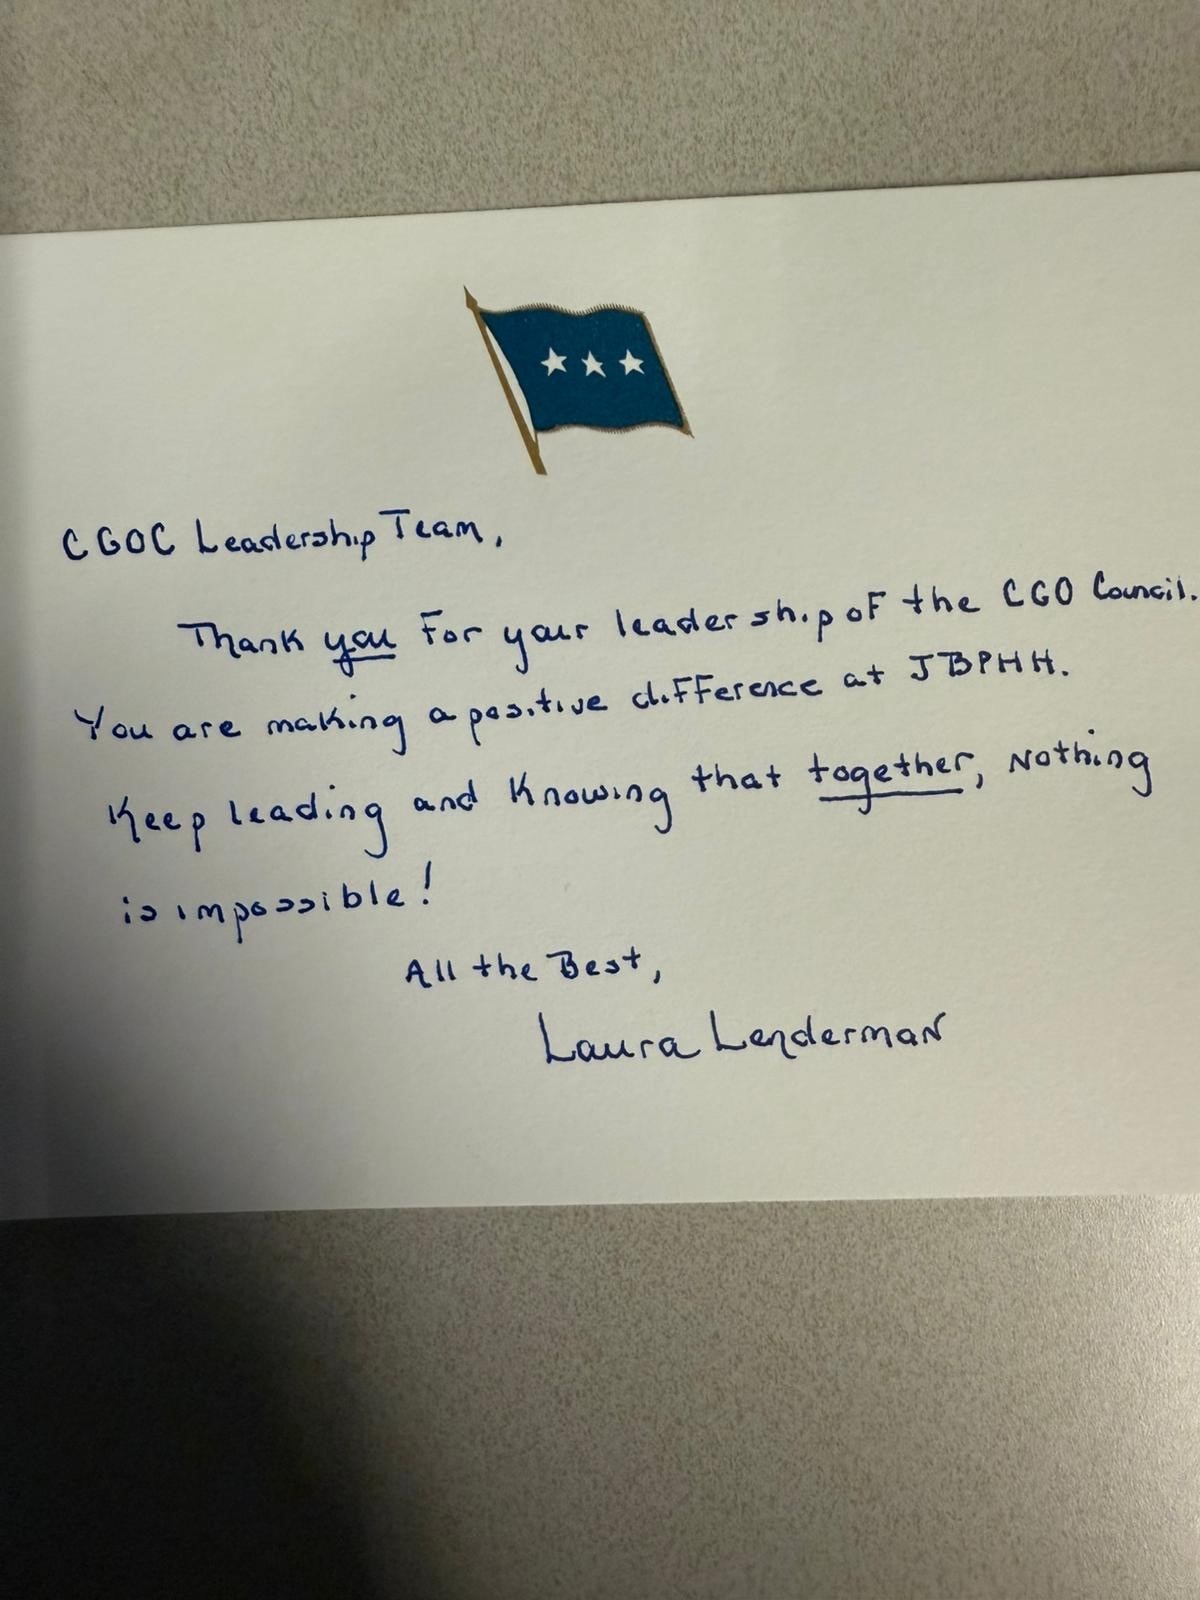 CGOC Leadership Team,
Thank you For your leadership oF the CGO Council.
You are making a positive diFFerence at JBPHH.
Keep leading and Knowing that together, Nothing
is impossible!
All the Best,
Laura Lenderman